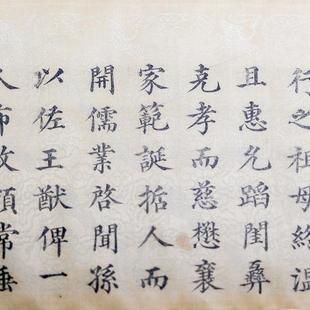 行之祖母終溫
且惠允蹈閨彞
克孝而慈懋襄
家範誕哲人而
開儒業啓聞孫
以佐王猷俾一
人布政頒常垂